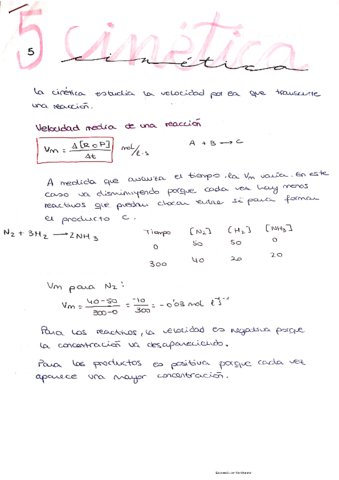 5 cinética
5
cinética
La cinética estudia la velocidad por la que transcurre
una reacción.
Velocidad media de una reacción
Vm = Δ[R o P] / Δt mol/l·s A + B → C
A medida que avanza el tiempo, la Vm varía. En este
caso va disminuyendo porque cada vez hay menos
reactivos que pueden chocar entre sí para formar
el producto C.
N₂ + 3H₂ → 2NH₃ Tiempo [N₂] [H₂] [NH₃]
0 50 50 0
300 40 20 20
Vm para N₂:
Vm = 40-50 / 300-0 = -10 / 300 = -0'03 mol
Para los reactivos, la velocidad es negativa porque
la concentración va desapareciendo.
Para los productos es positiva porque cada vez
aparece una mayor concentración.